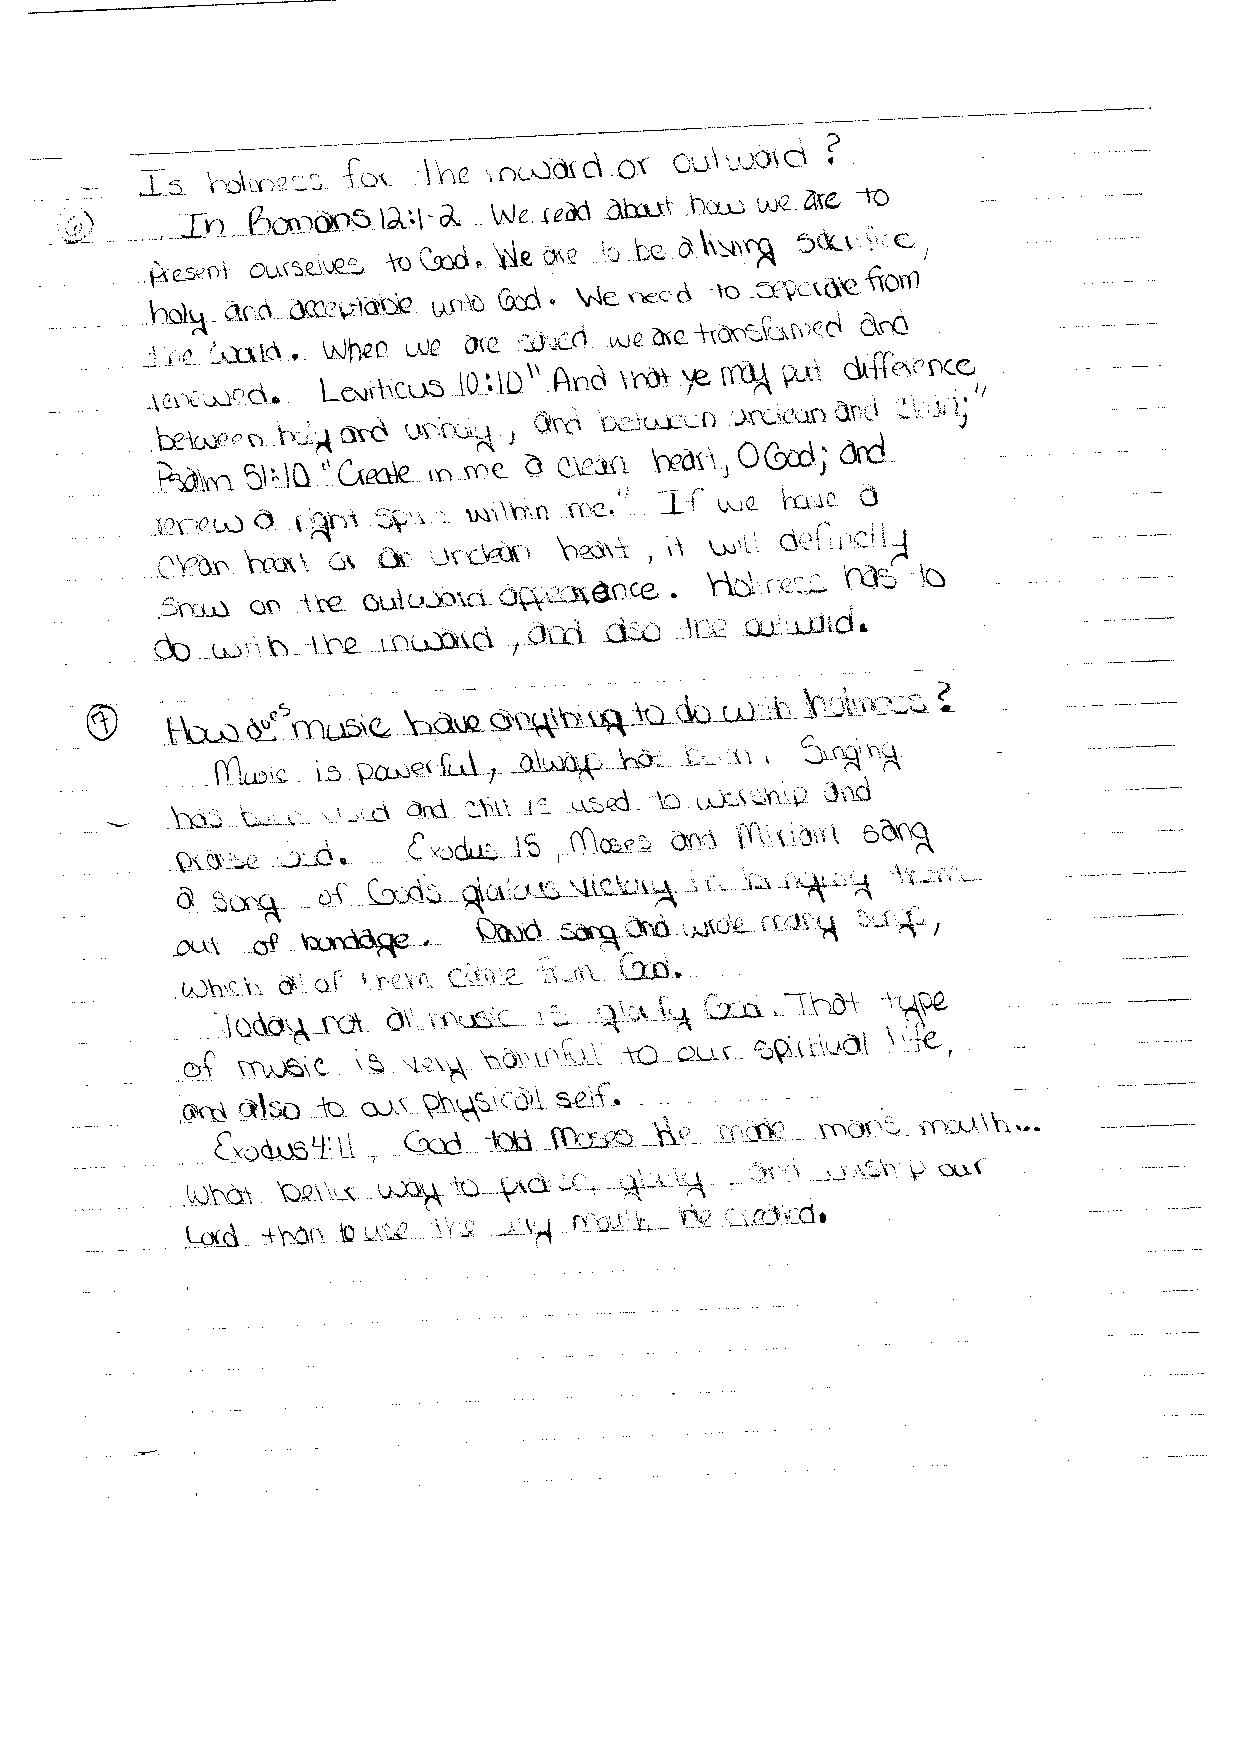 Is holiness for the inward or outward?
6) In Romans 12:1-2 We read about how we are to
present ourselves to God. We are to be a living sacrifice,
holy and acceptable unto God. We need to seperate from
the world. When we are saved we are transformed and
renewed. Leviticus 10:10 "And that ye may put difference
between holy and unholy, and between unclean and clean;"
Psalm 51:10 "Create in me a clean heart, O God; and
renew a right spirit within me." If we have a
clean heart or an unclean heart, it will definetly
show on the outward appearance. Holiness has to
do with the inward, and also the outward.
7 How does music have anything to do with holiness?
Music is powerful, always has been. Singing
has been used and still is used to worship and
praise God. Exodus 15, Moses and Miriam sang
a song of God's glorious victory in bringing them
out of bondage. David sang and wrote many songs,
which all of them came from God.
Today not all music is glorify God. That type
of music is very harmful to our spiritual life,
and also to our physical self.
Exodus 4:11, God told Moses He made man's mouth...
What better way to praise, glorify, and worship our
Lord than to use the very mouth He created.